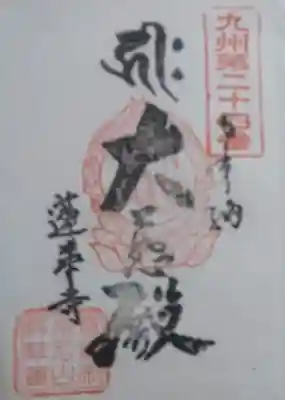 九州第二十四番
奉納
大悲殿
蓮華寺